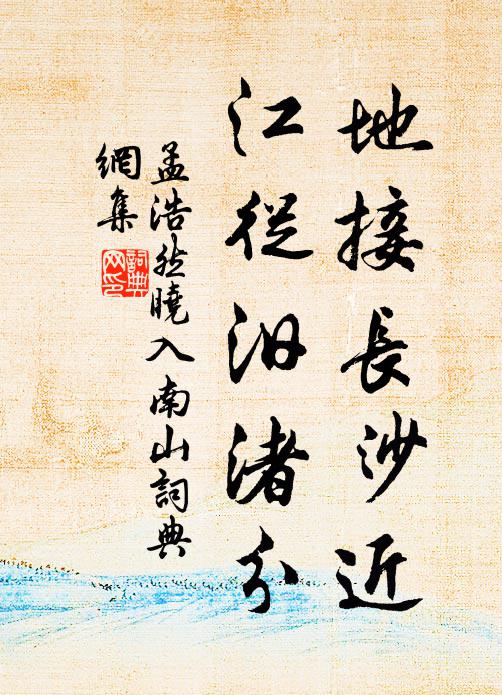 地接長沙近
江從汨渚分
孟浩然曉入南山詞典
網集
詞典
网印